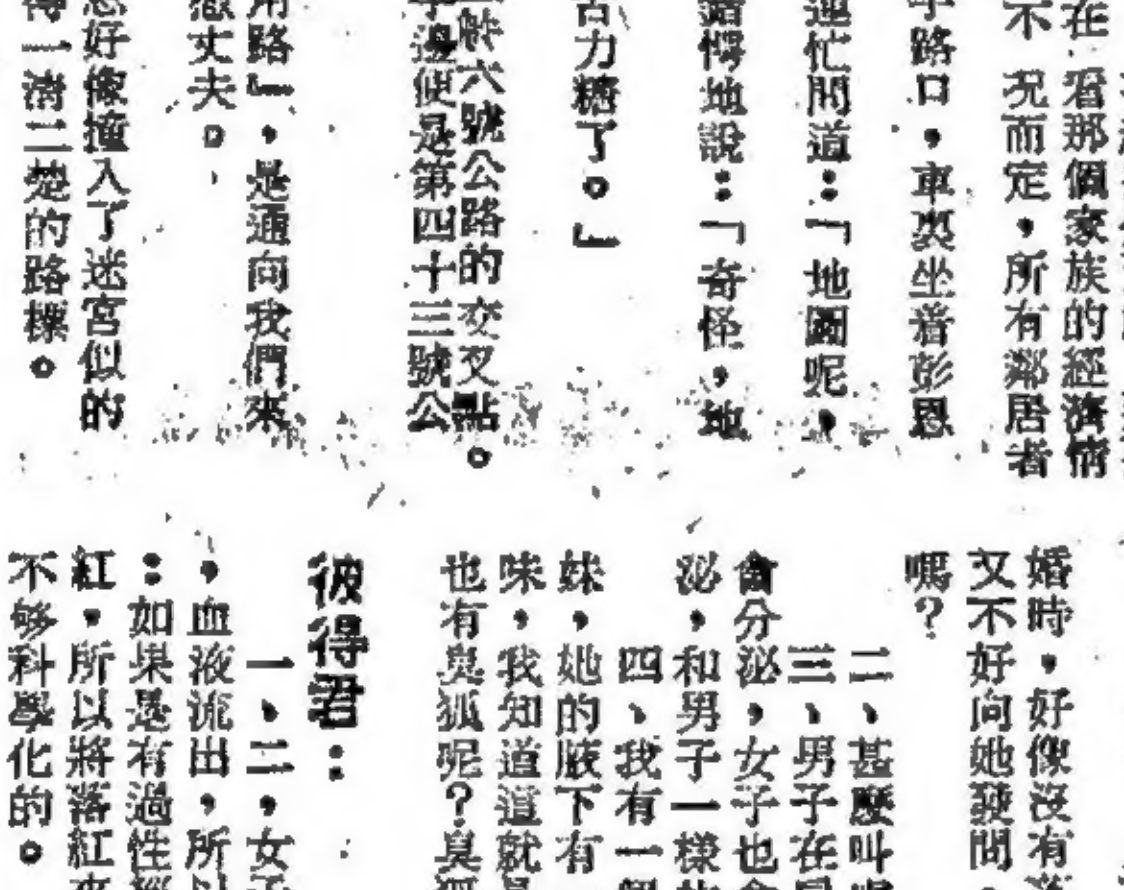 在 看那個家族的經濟情
不 况而定，所有鄰居者
路口，車裏坐着彭恩
連忙問道：「地圖呢，
諤地說：「奇怪，地
古力糖了。」
六號公路的交叉點。
邊便是第四十三號公
路』，是通向我們來
丈夫。
好像撞入了迷宮似的
得一清二楚的路標。
婚時，好像沒有
又不好向她發問，
嗎？
二、甚麼叫
三、男子在
會分泌，女子也會
泌，和男子一樣
四、我有一個
妹，她的腋下有
味，我知道這就是
也有臭狐呢？臭狐
彼得君：
一、二，女子
，血液流出，所以
：如果是有過性
紅，所以將落紅來
不够科學化的。